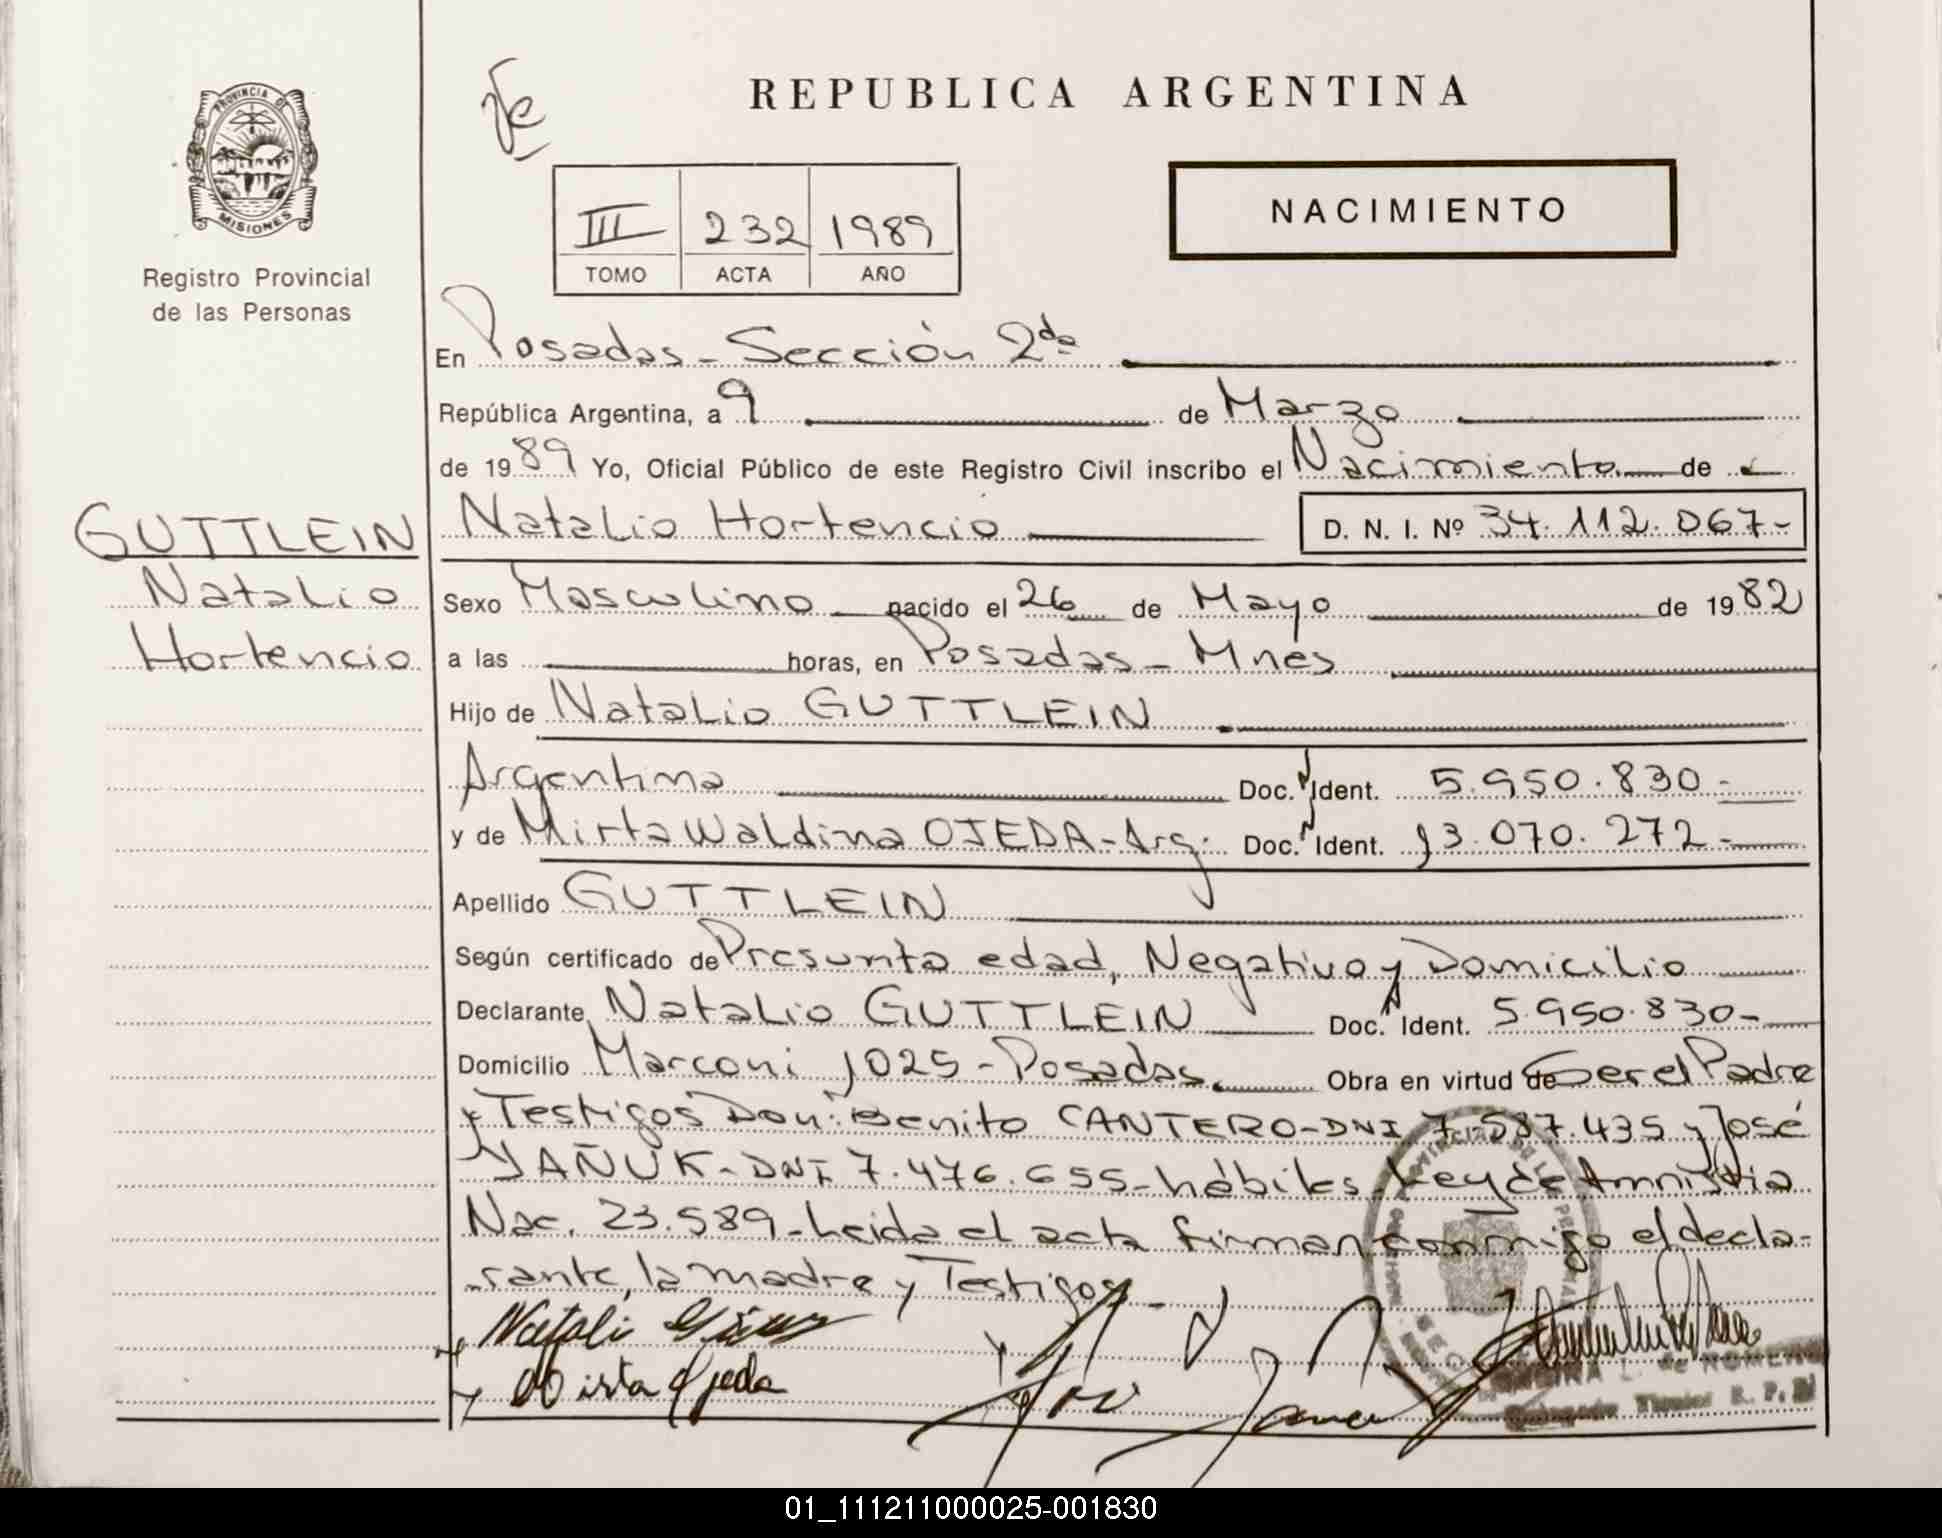 PROVINCIA DE
MISIONES
Registro Provincial
de las Personas
REPUBLICA ARGENTINA
III 232 1989
TOMO ACTA AÑO
NACIMIENTO
En Posadas - Sección 2da
República Argentina, a 9 de Marzo
de 1989 Yo, Oficial Público de este Registro Civil inscribo el Nacimiento de
GUTTLEIN
Natalio
Hortencio
Natalio Hortencio D. N. I. Nº 34.112.067-
Sexo Masculino nacido el 26 de Mayo de 1982
a las horas, en Posadas - Mnes
Hijo de Natalio GUTTLEIN
Argentina Doc. N Ident. 5.950.830-
y de Mirta Waldina OJEDA - Arg. Doc. N Ident. 13.070.272-
Apellido GUTTLEIN
Según certificado de Presunta edad, Negativo y Domicilio
Declarante Natalio GUTTLEIN Doc. N Ident. 5.950.830-
Domicilio Marconi 1025 - Posadas Obra en virtud de Ser el Padre
y Testigos Don: Benito CANTERO - DNI 7.587.435 y José
YAÑUK - DNI 7.476.655 - hábiles - Ley de Amnistia
Nac. 23.589 - Leida el acta firman conmigo el decla-
rante, la madre y Testigos -
Mirta Ojeda
01_111211000025-001830